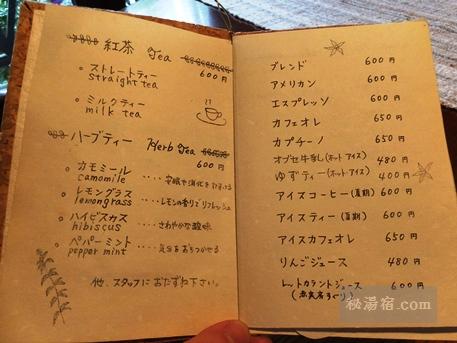 紅茶 Tea
・ストレートティー 600円
straight tea
・ミルクティー
milk tea
ハーブティー Herb Tea
600円
・カモミール ････安眠や消化を助ける
camomile
・レモングラス ････レモンの香りでリフレッシュ
lemongrass
・ハイビスカス ････さわやかな酸味
hibiscus
・ペパーミント ････気分をおちつかせる
pepper mint
他、スタッフにおたずね下さい。
ブレンド 600円
アメリカン 600円
エスプレッソ 600円
カフェオレ 650円
カプチーノ 650円
オブセ牛乳(ホット アイス) 480円
ゆずティー(ホット アイス) 400円
アイスコーヒー(夏期) 600円
アイスティー(夏期) 600円
アイスカフェオレ 650円
りんごジュース 480円
レッドカラントジュース 600円
秘湯宿.com